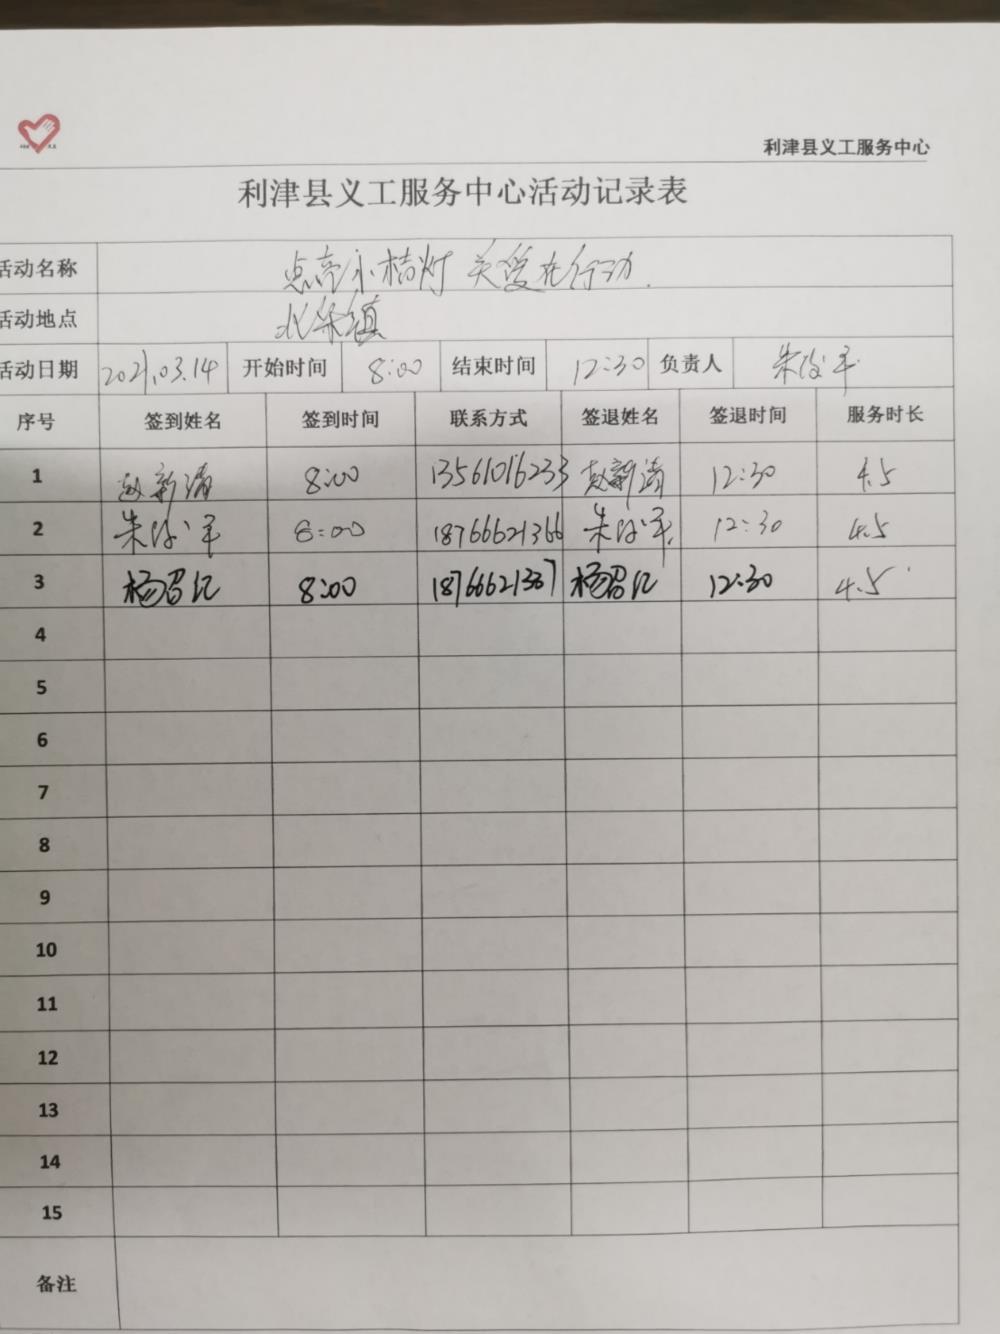 利津县义工服务中心
利津县义工服务中心活动记录表
活动名称 点亮小桔灯 关爱在行动.
活动地点 北宋镇
活动日期 2021.03.14 开始时间 8:00 结束时间 12:30 负责人 朱军
序号 签到姓名 签到时间 联系方式 签退姓名 签退时间 服务时长
1 赵新清 8:00 13561016233 赵新清 12:30 4.5
2 朱军 8:00 18766621366 朱军 12:30 4.5
3 杨 8:00 18766621367 杨 12:30 4.5
4
5
6
7
8
9
10
11
12
13
14
15
备注